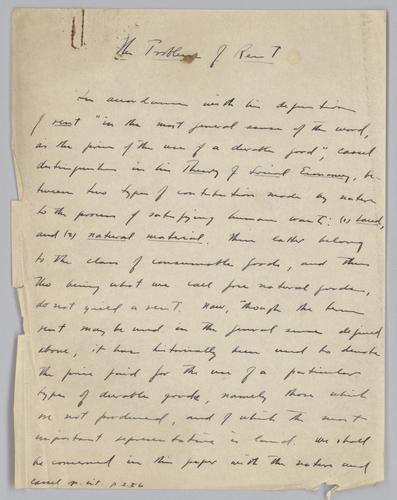 The Problem of Rent
In accordance with his definition
of rent "in the most general sense of the word,
as the price of the use of a durable good", Cassel
distinguishes in his Theory of Social Economy, be-
tween two types of contribution made by nature
to the process of satisfying human wants: (1) land,
and (2) natural material. These latter belong
to the class of consumable goods, and thus
this being what we call free natural goods,
do not yield a rent. Now, though the term
rent may be used in the general sense defined
above, it has historically been used to denote
the price paid for the use of a particular
type of durable goods, namely those which
are not produced, and of which the most
important representative is land. We shall
be concerned in this paper with the nature and
Cassel op. cit. p 256